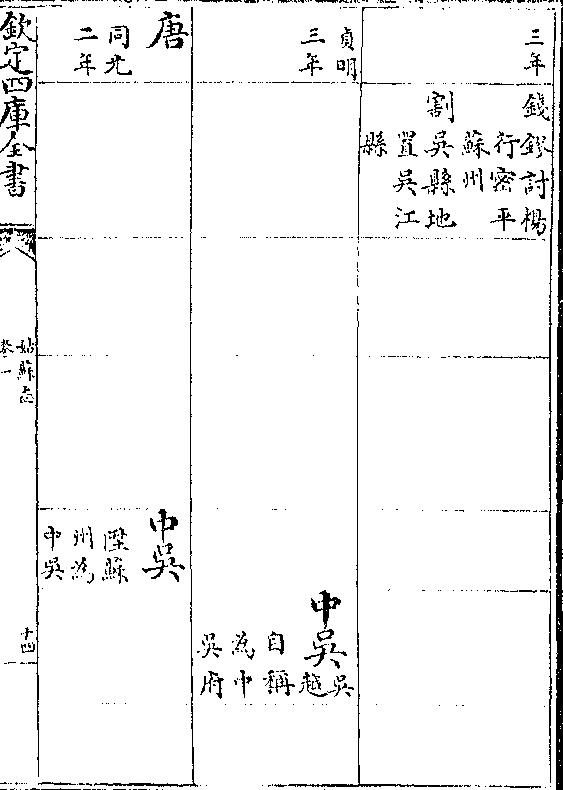 三年
錢鏐討楊
行密平
蘇州
割吳縣地
置吳江
縣
貞明
三年
中吳
吳
越
自稱
為中
吳府
唐
同光
二年
中吳
陞蘇
州為
中吳
欽定四庫全書
姑蘇志
卷一
十四